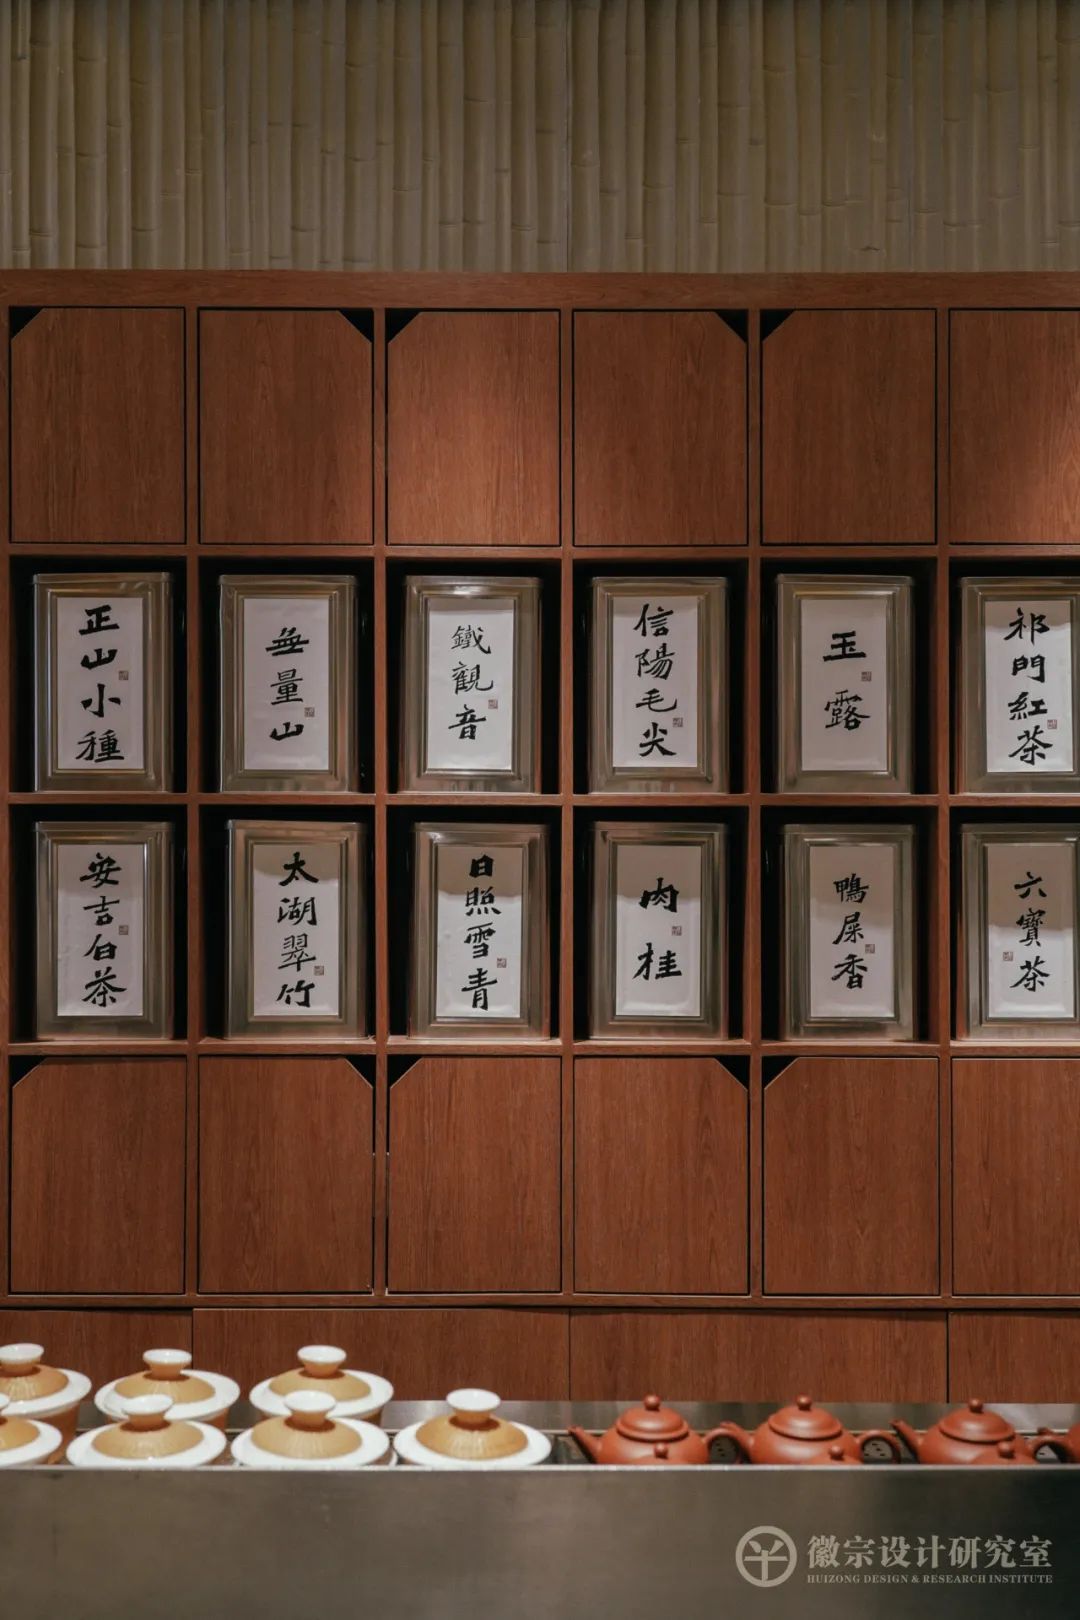 正山小種
無量山
鐵觀音
信陽毛尖
玉露
祁門紅茶
安吉白茶
太湖翠竹
日照雪青
肉桂
鴨屎香
六寶茶
徽宗设计研究室
HUIZONG DESIGN & RESEARCH INSTITUTE